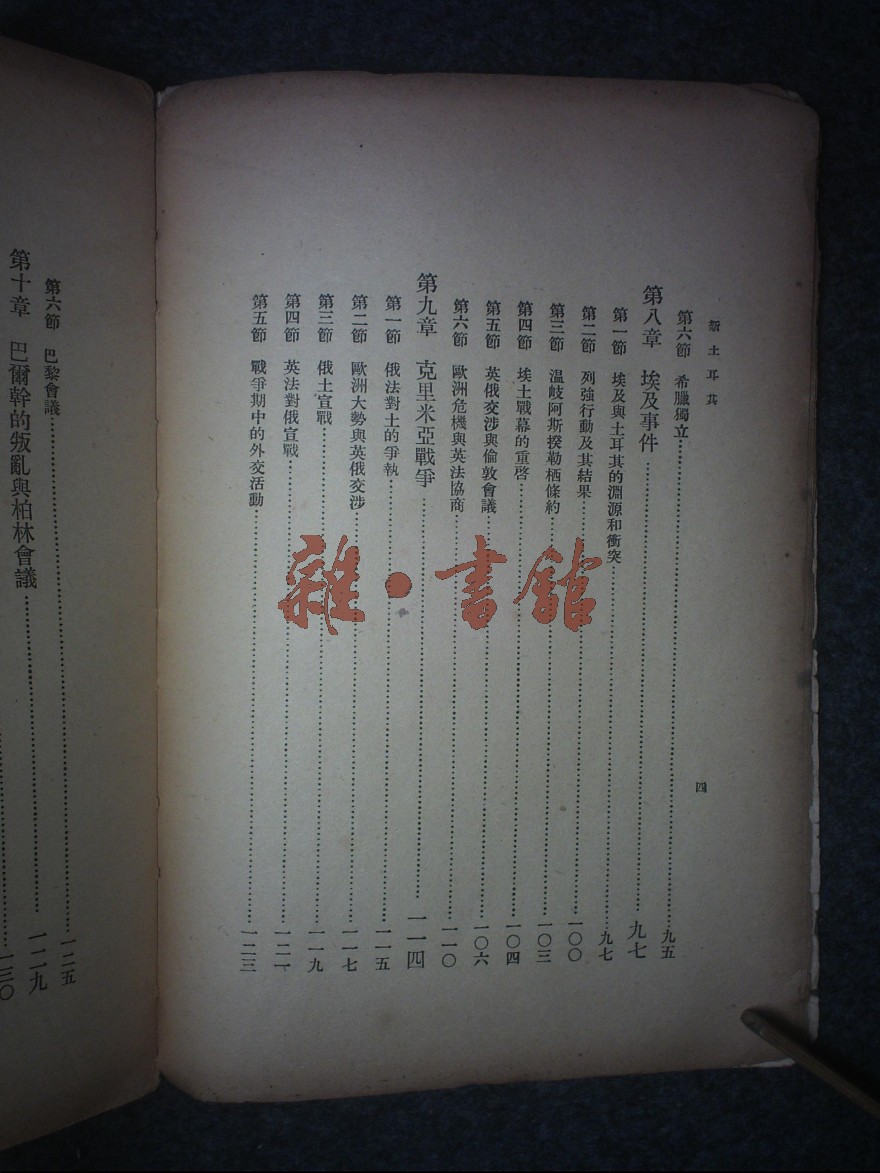 新土耳其
四
第六節 希臘獨立……九五
第八章 埃及事件……九七
第一節 埃及與土耳其的淵源和衝突……九七
第二節 列強行動及其結果……一〇〇
第三節 温岐阿斯揆勒栖條約……一〇三
第四節 埃土戰幕的重啓……一〇四
第五節 英俄交涉與倫敦會議……一〇六
第六節 歐洲危機與英法協商……一一〇
第九章 克里米亞戰爭……一一四
第一節 俄法對土的爭執……一一五
第二節 歐洲大勢與英俄交涉……一一七
第三節 俄土宣戰……一一九
第四節 英法對俄宣戰……一二一
第五節 戰爭期中的外交活動……一二三
第六節 巴黎會議……一二五
第十章 巴爾幹的叛亂與柏林會議……一二九
……一三〇
雜·書館